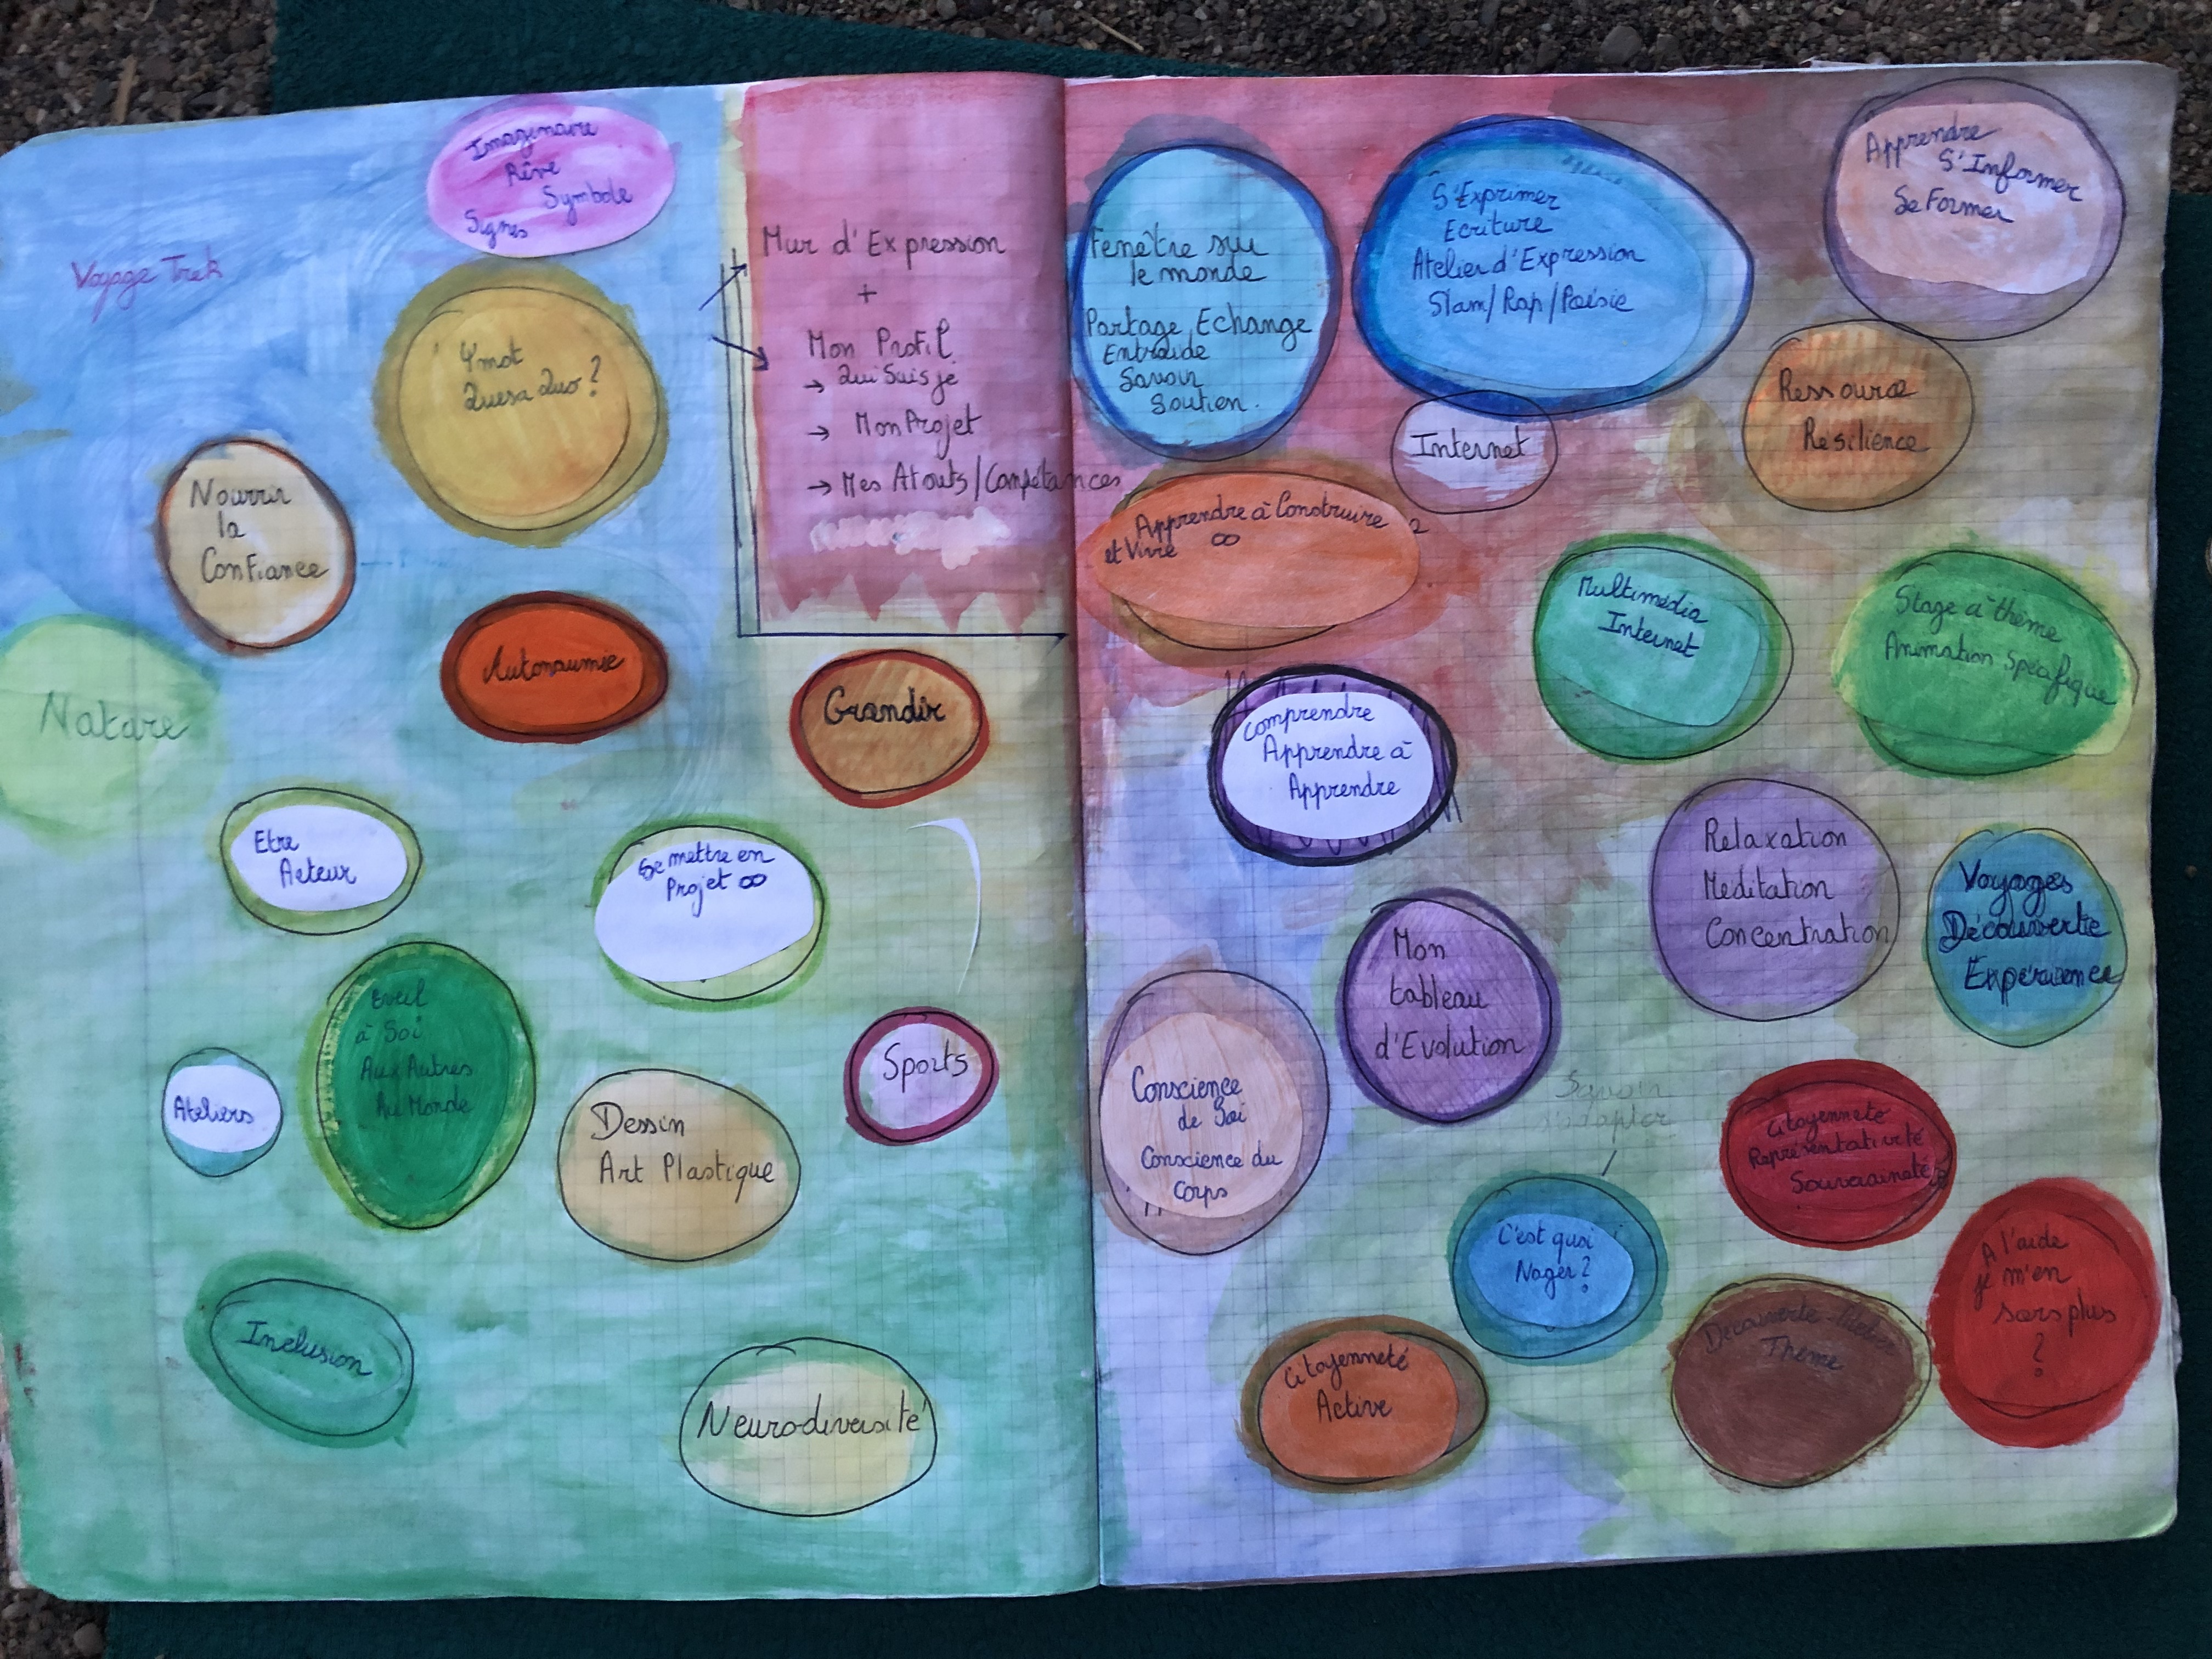 Imaginaire
Rêve
Symbole
Signes
Voyage Trek
4'mot
Quesa Quo?
Nourrir
la
Confiance
Autonaumie
Nature
Grandir
Etre
Acteur
Se mettre en
Projet ∞
Eveil
à Soi
Aux Autres
Au Monde
Ateliers
Sports
Dessin
Art Plastique
Inclusion
Neurodiversité
Mur d'Expression
+
Mon Profil
→ Qui Suis je
→ Mon Projet
→ Mes Atouts/Compétances
Fenêtre sur
le monde
Partage Echange
Entraide
Savoir
Soutien.
S'Exprimer
Ecriture
Atelier d'Expression
Slam/Rap/Poésie
Apprendre
S'Informer
Se Former
Internet
Ressource
Résilience
Apprendre à Construire
et Vivre ∞
Multimédia
Internet
Stage à thème
Animation Spécifique
Comprendre
Apprendre à
Apprendre
Relaxation
Meditation
Concentration
Voyages
Découverte
Expérience
Mon
tableau
d'Evolution
Conscience
de Soi
Conscience du
Corps
Savoir
s'adapter
C'est quoi
Nager?
Citoyenneté
Représentativité
Souveraineté
A l'aide
je m'en
sors plus
?
Citoyenneté
Active
Découverte Atelier
Thème